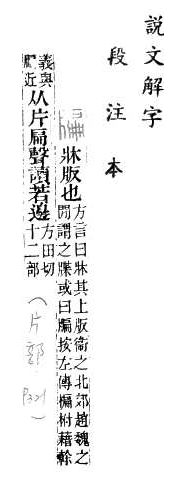 說文解字
段注本
牀版也
方言曰牀其上版衛之北郊趙魏之
閒謂之牒或曰牑按左傳楄柎藉幹
義與
近
从片扁聲讀若邊
方田切
十二部
(片部 P321)